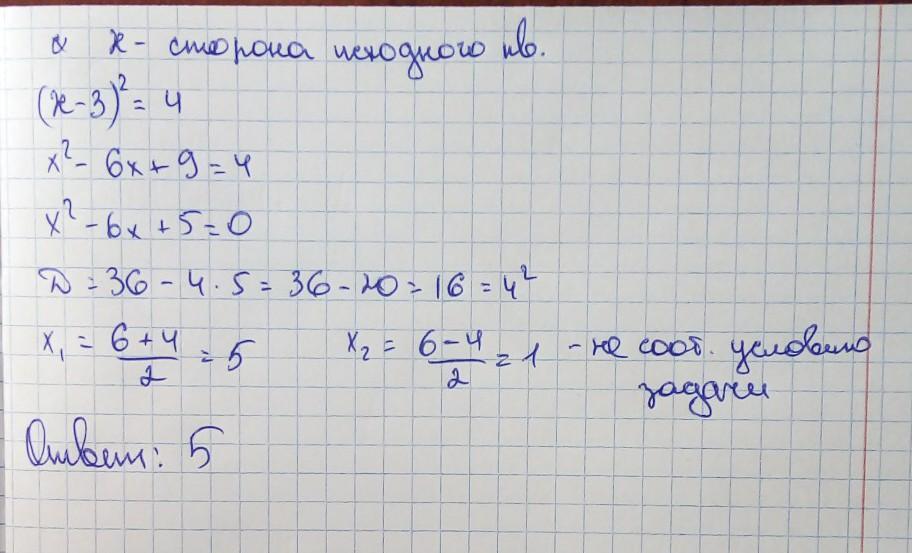 x - сторона исходного кв.
(x-3)² = 4
x² - 6x + 9 = 4
x² - 6x + 5 = 0
D = 36 - 4 · 5 = 36 - 20 = 16 = 4²
x₁ = (6+4)/2 = 5 x₂ = (6-4)/2 = 1 - не соот. условию
задачи
Ответ: 5